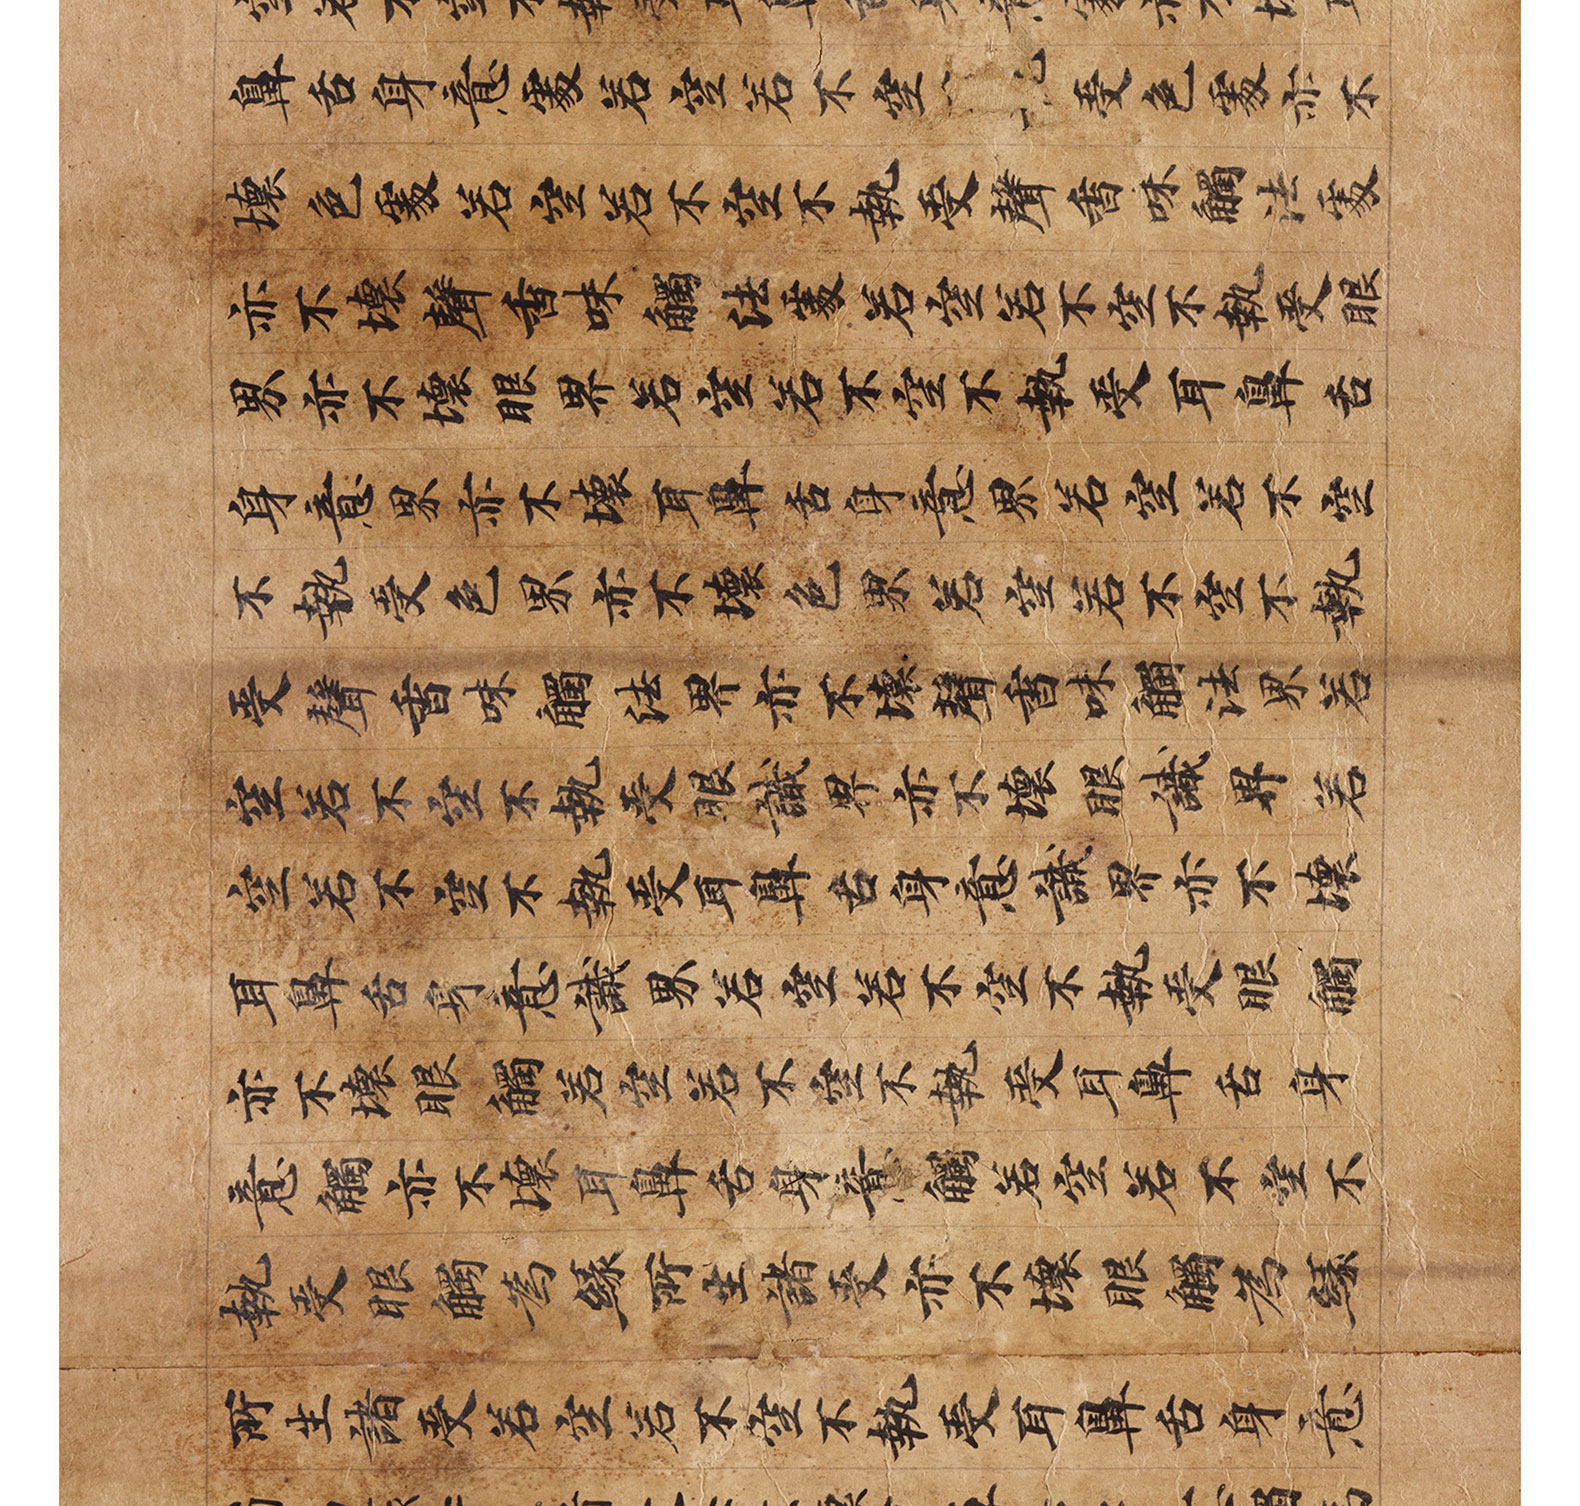 鼻舌身意處若空若不空受色處亦不
壞色處若空若不空不執受聲香味觸法處
亦不壞聲香味觸法處若空若不空不執受眼
界亦不壞眼界若空若不空不執受耳鼻舌
身意界亦不壞耳鼻舌身意界若空若不空
不執受色界亦不壞色界若空若不空不執
受聲香味觸法界亦不壞聲香味觸法界若
空若不空不執受眼識界亦不壞眼識界若
空若不空不執受耳鼻舌身意識界亦不壞
耳鼻舌身意識界若空若不空不執受眼觸
亦不壞眼觸若空若不空不執受耳鼻舌身
意觸亦不壞耳鼻舌身意觸若空若不空不
執受眼觸為緣所生諸受亦不壞眼觸為緣
所生諸受若空若不空不執受耳鼻舌身意